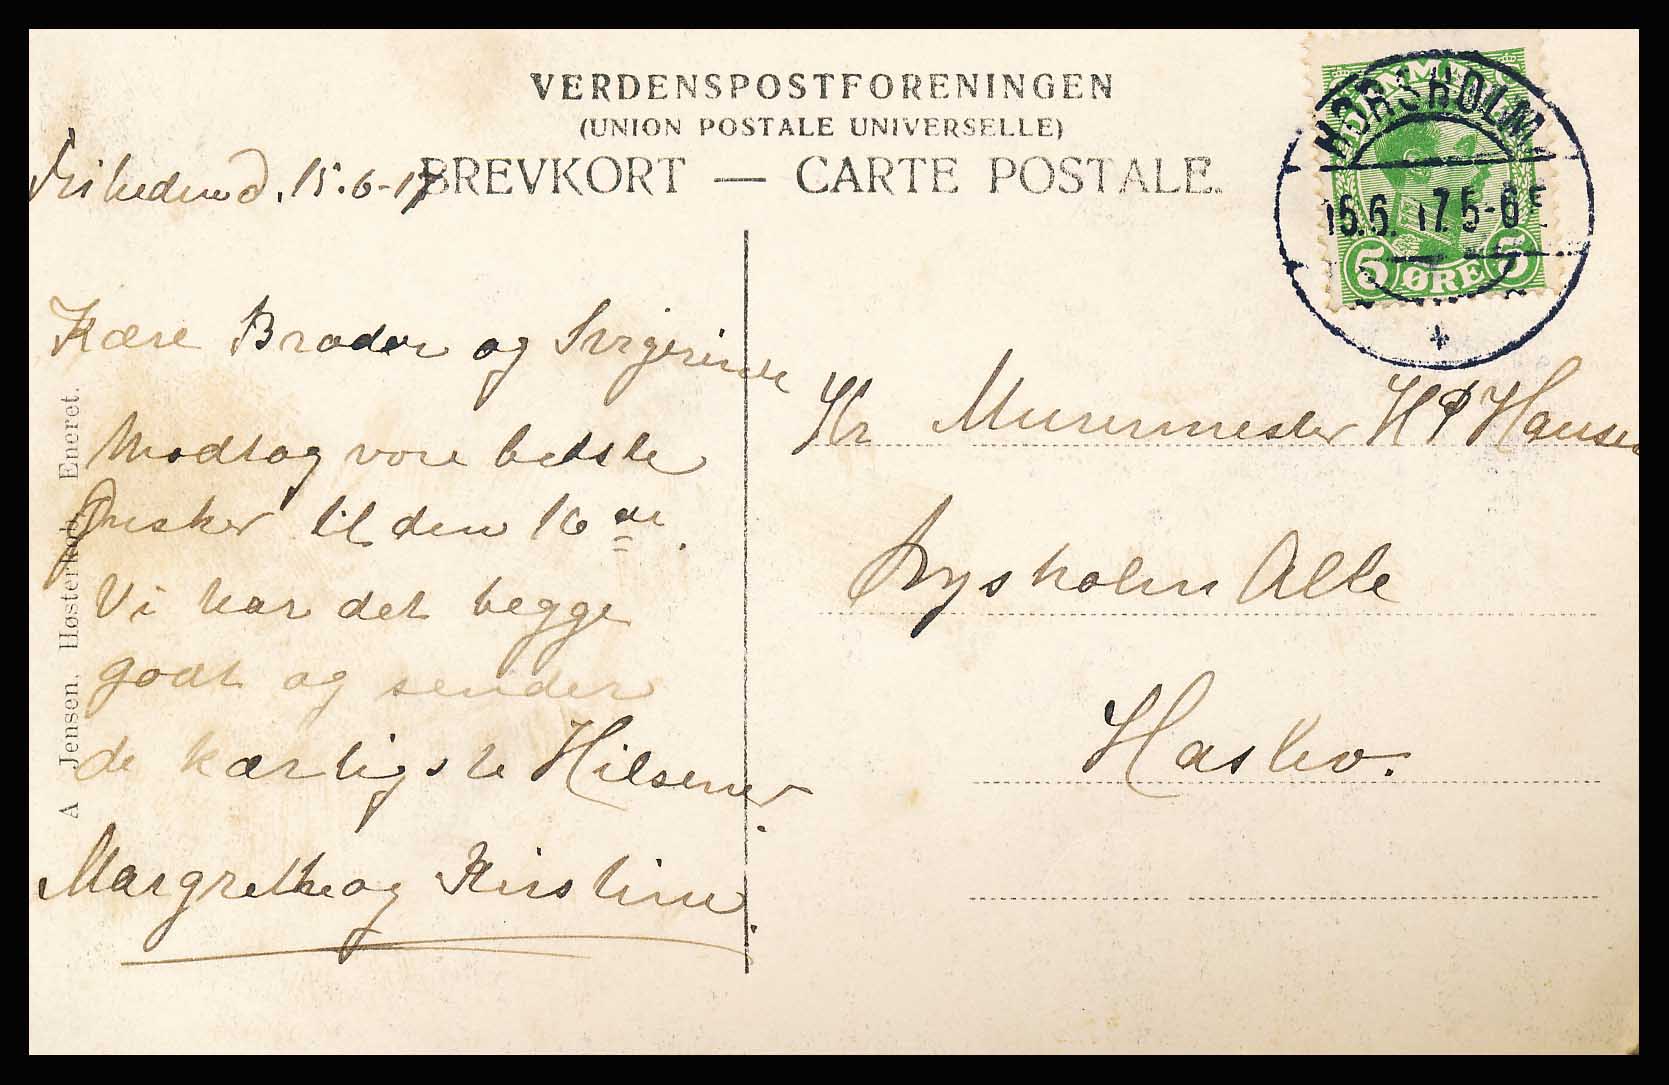 VERDENSPOSTFORENINGEN
(UNION POSTALE UNIVERSELLE)
BREVKORT — CARTE POSTALE.
d. 15.6-17
Kære Broder og Svigerinde
Modtag vore bedste
Ønsker til den 16 de.
Vi har det begge
godt og sender
de kærligste Hilsener.
Margrethe og Kirstine.
A Jensen, Høsterkøb. Eneret.
DANMARK
5 ØRE 5
HØRSHOLM
15.6.17. 5-6 E
Hr Murermester H P Hansen
Lysholm Alle
Haslev.